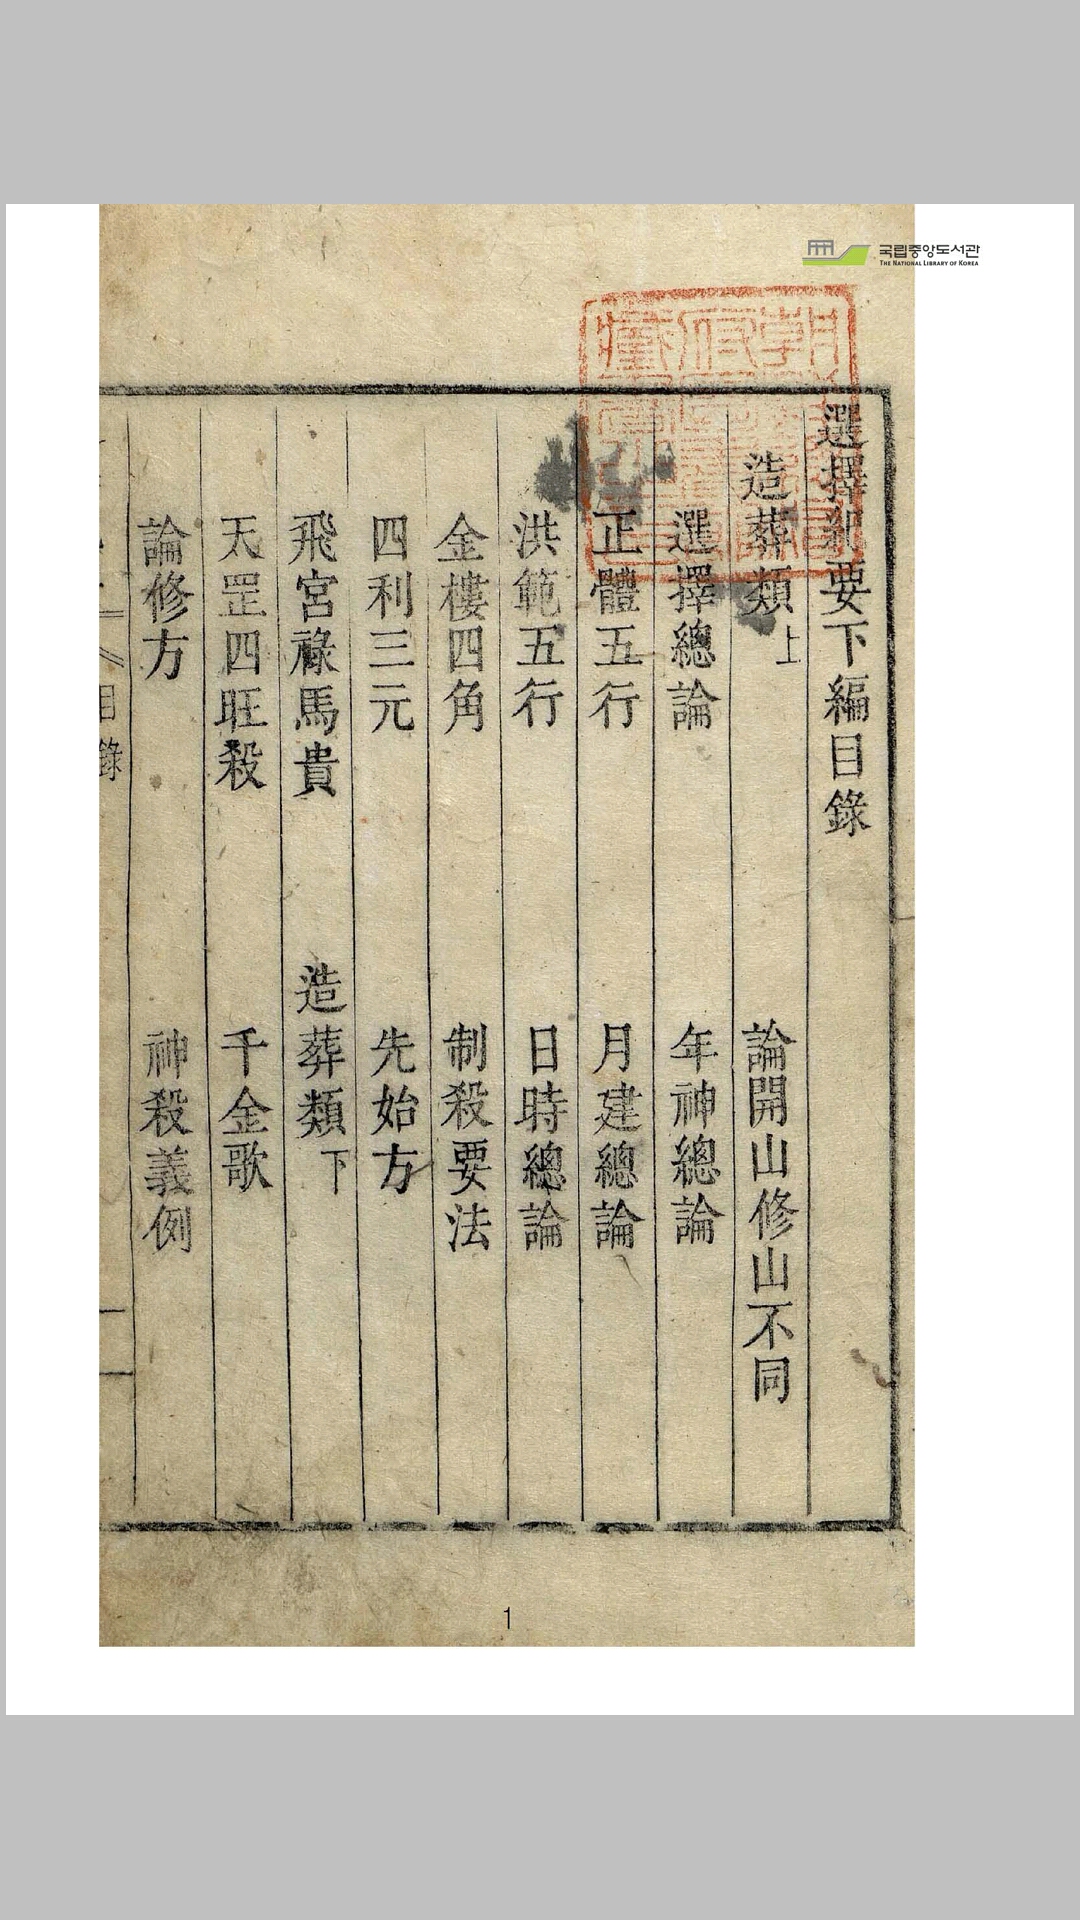 국립중앙도서관
THE NATIONAL LIBRARY OF KOREA
選擇紀要下編目錄
造葬類上
論開山修山不同
選擇總論
年神總論
正體五行
月建總論
洪範五行
日時總論
金樓四角
制殺要法
四利三元
先始方
飛宮祿馬貴
造葬類下
天罡四旺殺
千金歌
論修方
神殺義例
目錄
一
1